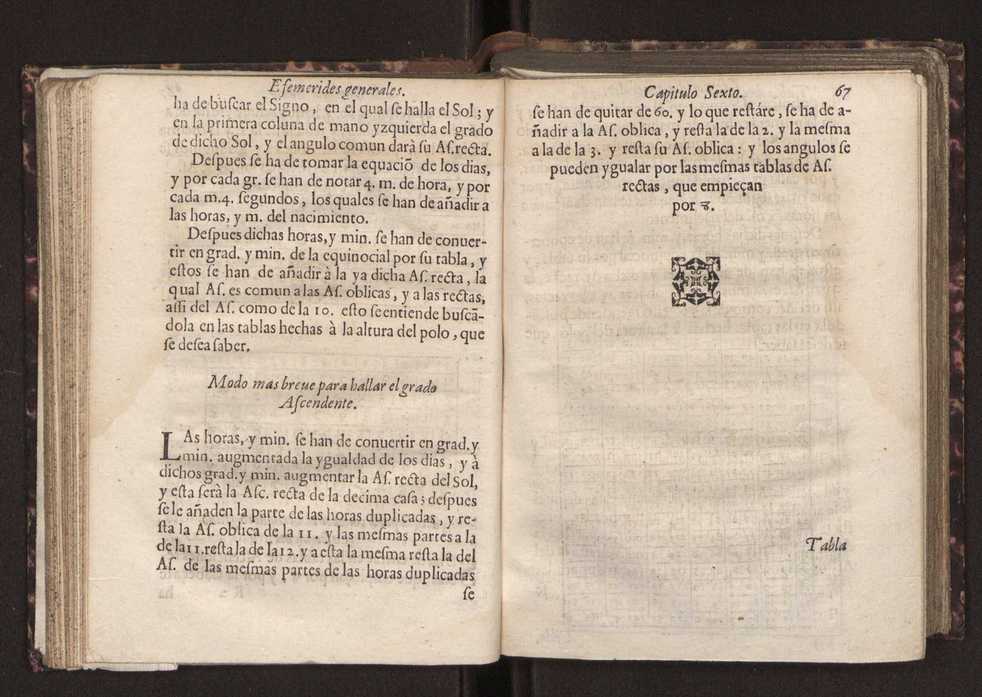 Eſemerides generales.
ha de buſcar el Signo, en el qual ſe halla el Sol; y
en la primera coluna de mano yzquierda el grado
de dicho Sol, y el angulo comun darà ſu Aſ.recta.
Deſpues ſe ha de tomar la equaciõ de los dias,
y por cada gr. ſe han de notar 4. m. de hora, y por
cada m.4. ſegundos, los quales ſe han de añadir a
las horas, y m. del nacimiento.
Deſpues dichas horas, y min. ſe han de conuer-
tir en grad. y min. de la equinocial por ſu tabla, y
eſtos ſe han de añadir à la ya dicha Aſ. recta, la
qual Aſ. es comun a las Aſ. oblicas, y a las rectas,
aſſi del Aſ. como de la 10. eſto ſe entiende buſcã-
dola en las tablas hechas à la altura del polo, que
ſe deſea ſaber.
Modo mas breue para hallar el grado
Aſcendente.
LAs horas, y min. ſe han de conuertir en grad. y
min. augmentada la ygualdad de los dias, y à
dichos grad. y min. augmentar la Aſ. recta del Sol,
y eſta ſerà la Aſc. recta de la decima caſa; deſpues
ſe le añaden la parte de las horas duplicadas, y re-
ſta la Aſ. oblica de la 11. y las meſmas partes a la
de la 11. reſta la de la 12. y a eſta la meſma reſta la del
Aſ. de las meſmas partes de las horas duplicadas
ſe
Capitulo Sexto. 67
ſe han de quitar de 60. y lo que reſtáre, ſe ha de a-
ñadir a la Aſ. oblica, y reſta la de la 2. y la meſma
a la de la 3. y reſta ſu Aſ. oblica: y los angulos ſe
pueden ygualar por las meſmas tablas de Aſ.
rectas, que empieçan
por ♉.
Tabla